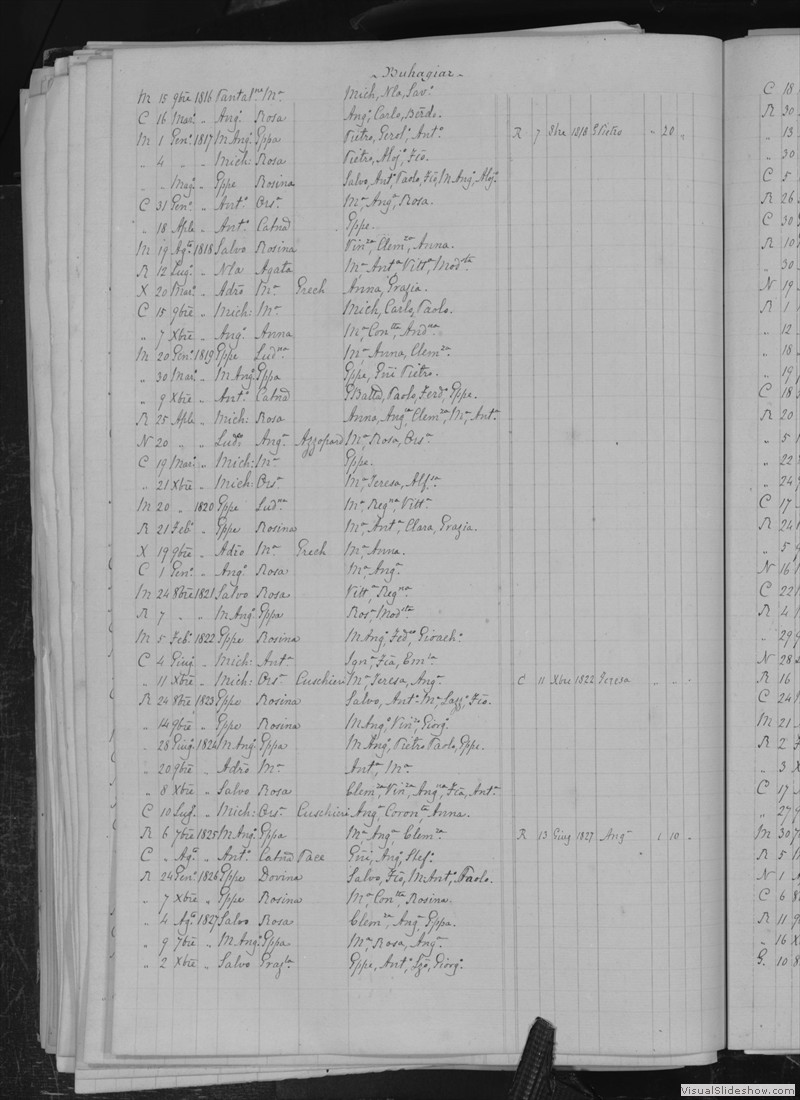 ~ Buhagiar ~
M 15 9bre 1816 Pantal.ne M.a Mich, Nla, Sav.o
C 16 Mar. „ Ang.o Rosa Ang.o Carlo, Bĕrdo.
M 1 Gen.o 1817 M Ang.o Gppa Pietro, Gerol.o Ant.o R 7 8bre 1818 G. Pietro „ 20 „
„ 4 „ „ Mich: Rosa Pietro, Aloj.o Fĉo.
„ „ Mag.o „ Gppe Rosina Salvo, Ant.o Paolo, Fĉo, M Ang.o Aloj.o
C 31 Gen.o „ Ant.o Ors.a M.a Ang.a Rosa.
„ 18 Aple „ Ant.o Catnā Gppe.
M 19 Ag.o 1818 Salvo Rosina Vin.za Clem.za Anna.
R 12 Lug.o „ Nla Agata M.a Ant.a Vitt.a Mod.sta
X 20 Mar. „ Adrŏ M.a Grech Anna, Grazia.
C 15 9bre „ Mich: M.a Mich, Carlo, Paolo.
„ 7 Xbre „ Ang.o Anna M.a Con.tta And.na
M 20 Gen.o 1819 Gppe Lud.na M.a Anna, Clem.za
„ 30 Mar. „ M Ang.o Gppa Gppe, Gñi Pietro.
„ 9 Xbre „ Ant.o Catnā GBattā, Paolo, Ferd.o Gppe.
R 25 Aple „ Mich: Rosa Anna, Ang.ca Clem.za M.a Ant.a
N 20 „ „ Lud.o Ang.a Azzopard M.a Rosa, Ors.a
C 19 Mar. „ Mich: M.a Gppe.
„ 21 Xbre „ Mich: Ors.a M.a Teresa, Alf.sa
M 20 „ 1820 Gppe Lud.na M.a Reg.na Vitt.a
R 21 Feb.o „ Gppe Rosina M.a Ant.a Clara, Grazia.
X 19 9bre „ Adrŏ M.a Grech M.a Anna.
C 1 Gen.o „ Ang.o Rosa M.a Ang.a
M 24 8bre 1821 Salvo Rosa Vitt.a Reg.na
R 7 „ „ M Ang.o Gppa Ros.a Mod.sta
M 5 Feb.o 1822 Gppe Rosina M Ang.o Fed.co Gioach.o
C 4 Giug.o „ Mich: Ant.a Ign.a Fĉa, Em.la
„ 11 Xbre „ Mich: Ors.a Cuschieri M.a Teresa, Ang.a C 11 Xbre 1822 Teresa „ „ „
R 24 8bre 1823 Gppe Rosina Salvo, Ant.o M.a Lazz.o Fĉo.
„ 14 9bre „ Gppe Rosina M Ang.o Vin.zo Giorg.o
„ 28 Giug.o 1824 M Ang.o Gppa M Ang.o Pietro Paolo, Gppe.
„ 20 9bre „ Adrŏ M.a Ant.a M.a
„ 8 Xbre „ Salvo Rosa Clem.za Vin.za Ang.ca Fĉa, Ant.a
C 10 Lug.o „ Mich: Ors.a Cuschieri Ang.a Coron.ta Anna.
R 6 7bre 1825 M Ang.o Gppa M.a Ang.a Clem.za R 13 Giug 1827 Ang.a 1 10 „
C „ Ag.o „ Ant.o Catnā Pace Gñi, Ang.o Stef.o
R 24 Gen.o 1826 Gppe Dovina Salvo, Fĉo, M Ant.o Paolo.
„ 7 Xbre „ Gppe Rosina M.a Con.tta Rosina.
„ 4 Ag.o 1827 Salvo Rosa Clem.za Ang.a Gppa.
„ 9 7bre „ M Ang.o Gppa M.a Rosa, Ang.a
„ 2 Xbre „ Salvo Graz.la Gppe, Ant.o Igŏ, Giorg.o
C 18
R 30
„ 13
„ 30
C 5
R 26
C 30
R 10
„ 30
N 19
R 1
„ 12
„ 18
„ 19
C 18
R 20
„ 5
„ 22
„ 24
C 17
R 24
„ 5
N 16
C 22
R 4
„ 29
N 28
R 16
C 24
M 21
R 2
„ 3
C 17
„ 27
M 30
R 5
N 1
C 6
R 11
„ 16
G. 10
VisualSlideshow.com